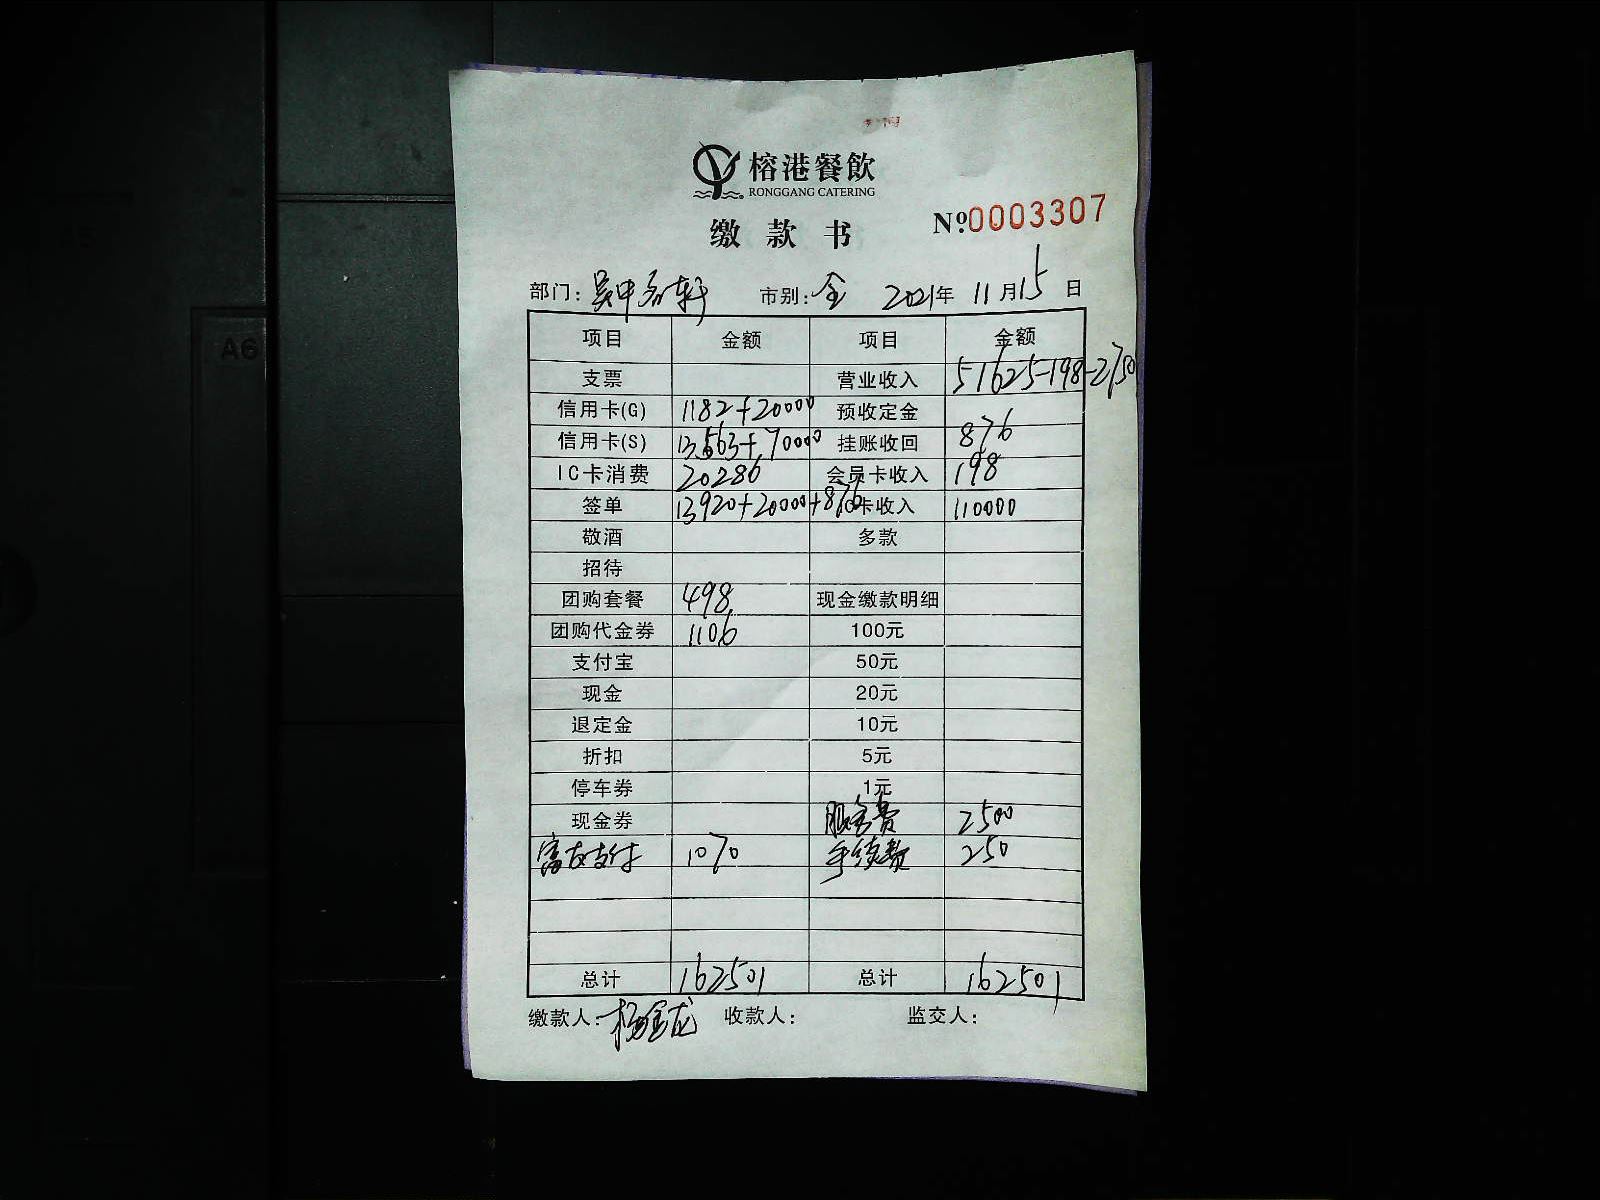 榕港餐飲
RONGGANG CATERING
缴款书
№0003307
部门: 吴中名轩 市别: 全 2021年 11月15日
项目 金额 项目 金额
支票 营业收入 51625-198-2750
信用卡(G) 1182+20000 预收定金
信用卡(S) 13563+70000 挂账收回 876
IC卡消费 20286 会员卡收入 198
签单 13920+20000+876 卡收入 110000
敬酒 多款
招待
团购套餐 498 现金缴款明细
团购代金券 1106 100元
支付宝 50元
现金 20元
退定金 10元
折扣 5元
停车券 1元
现金券 服务费 2500
富友支付 1070 手续费 250
总计 162501 总计 162501
缴款人: 杨金龙 收款人: 监交人:
A6